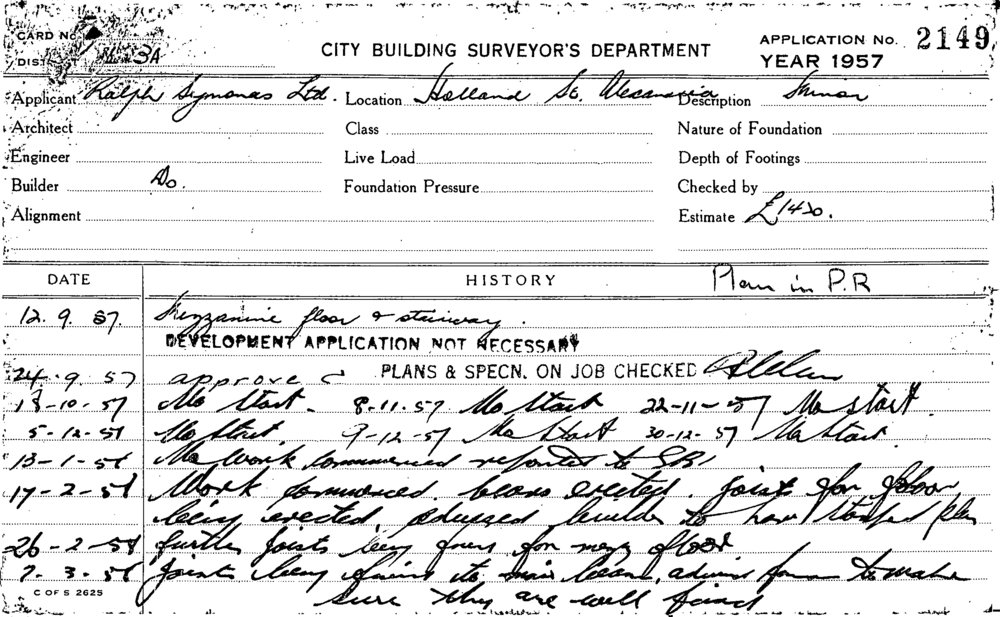 CARD No
CITY BUILDING SURVEYOR'S DEPARTMENT
APPLICATION No. 2149
DISTRICT 3A
YEAR 1957
Applicant Ralph Symonds Ltd. Location Holland St. Alexandria Description Minor
Architect Class Nature of Foundation
Engineer Live Load Depth of Footings
Builder Do. Foundation Pressure Checked by
Alignment Estimate £1420.
DATE HISTORY Plan in P.R
12.9.57. Mezzanine floor & stairway.
DEVELOPMENT APPLICATION NOT NECESSARY
24.9.57 approved PLANS & SPECN. ON JOB CHECKED
18-10-57 No Start. 8-11-57 No Start 22-11-57 No Start.
5-12-57 No Start. 9-12-57 No Start 30-12-57 No Start
13-1-58 No Work commenced reported to
17-2-58 Work commenced. beams erected. joists for floor
being erected, advised builder to have stamped plan
26-2-58 further joists being for mezz floor
7-3-58 joists being to main beam, advised to make
sure they are well
C OF S 2625